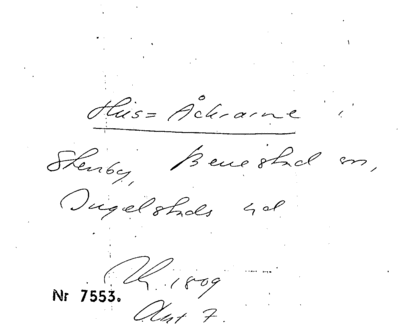 Hus=Åkrarne i
Stenby, Benestad sn,
Ingelstads hd
Th. 1809
Akt 7.
Nr 7553.